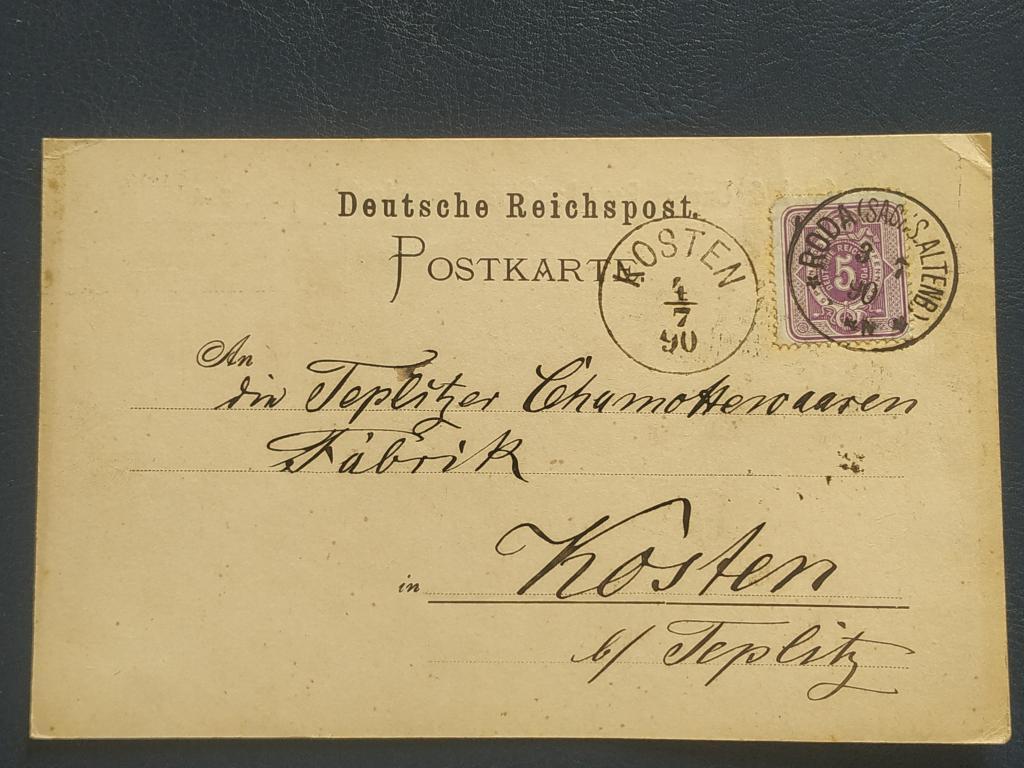 Deutsche Reichspost.
POSTKARTE
KOSTEN
4
7
90
* RODA (SACHS. ALTENB.) *
3 7
90
5
An
die Teplitzer Chamottewaaren
Fabrik
in Kosten
b/ Teplitz